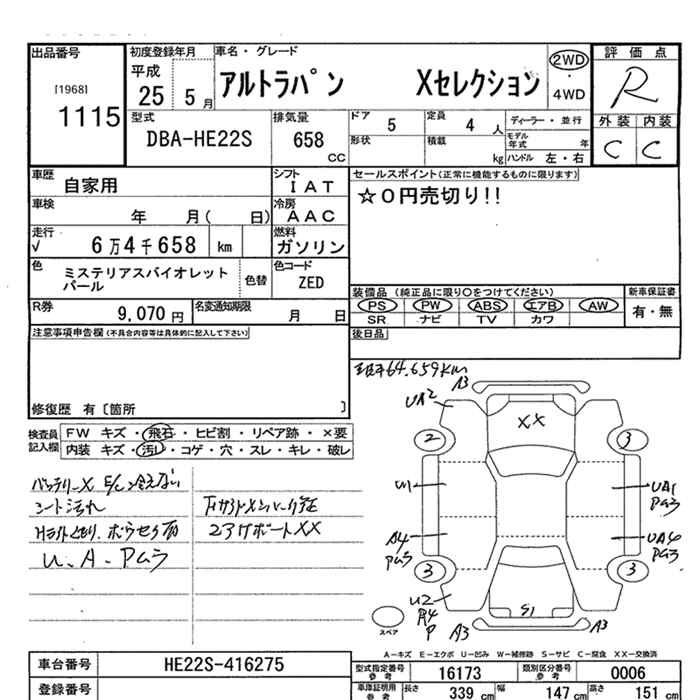 出品番号 初度登録年月 車名・グレード 評価点
[1968] 平成 アルトラパン Xセレクション 2WD R
1115 25 5月 ・ 4WD
型式 排気量 ドア 5 定員 4人 ディーラー・並行 外装 内装
DBA-HE22S 658 CC 形状 積載 kg モデル年式 年 C C
ハンドル 左・右
車歴 自家用 シフト IAT セールスポイント(正常に機能するものに限ります)
車検 年 月( 日) 冷房 AAC ☆0円売切り!!
走行 √ 6万4千658 km 燃料 ガソリン
色 ミステリアスバイオレット 色替 色コード
パール ZED
装備品 (純正品に限り○をつけてください) 新車保証書
R券 9,070円 名変通知期限 月 日 PS PW ABS エアB AW 有・無
SR ナビ TV カワ
注意事項申告欄(不具合内容等は具体的に記入して下さい) 後日品
修復歴 有〔箇所 〕
64.659KM
検査員 FW キズ・飛石・ヒビ割・リペア跡・×要
記入欄 内装 キズ・汚れ・コゲ・穴・スレ・キレ・破レ
バッテリーX E/C冷えない
シート汚れ
U.A.Pムラ
A3
UA2 XX
2 3
U1 UA1
Pムラ
A4 UA4
Pムラ Pムラ
3 3
U2 S1
P A3 A3
スペア
A-キズ E-エクボ U-凹み W-補修跡 S-サビ C-腐食 XX-交換済
車台番号 HE22S-416275 型式指定番号 参考 16173 類別区分番号 参考 0006
登録番号 車庫証明用 参考 長さ 339 cm 幅 147 cm 高さ 151 cm